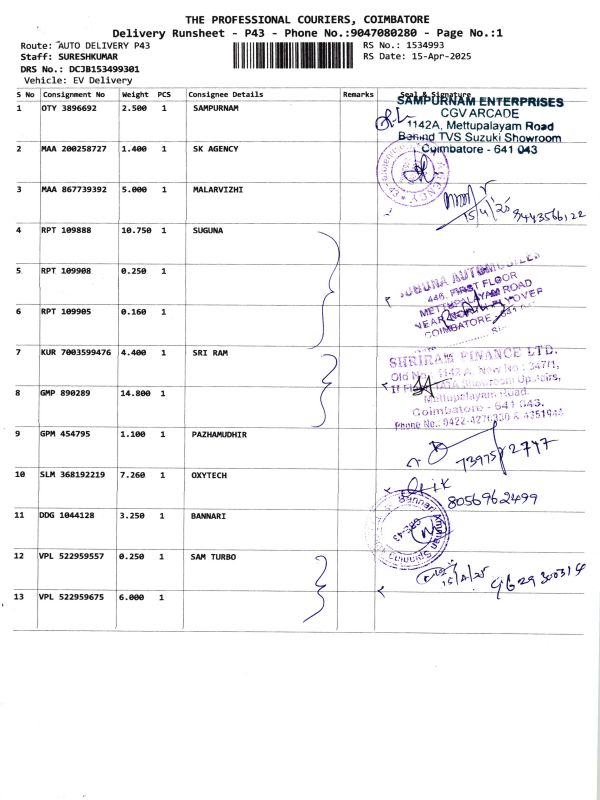 THE PROFESSIONAL COURIERS, COIMBATORE
Delivery Runsheet - P43 - Phone No.:9047080280 - Page No.:1
Route: AUTO DELIVERY P43
RS No.: 1534993
Staff: SURESHKUMAR
RS Date: 15-Apr-2025
DRS No.: DCJB153499301
Vehicle: EV Delivery
S No Consignment No Weight PCS Consignee Details Remarks Seal & Signature
1 OTY 3896692 2.500 1 SAMPURNAM
SAMPURNAM ENTERPRISES
CGV ARCADE
1142A, Mettupalayam Road
Behind TVS Suzuki Showroom
Coimbatore - 641 043
2 MAA 200258727 1.400 1 SK AGENCY
AGENCY
3 MAA 867739392 5.000 1 MALARVIZHI
15/4/25 9443566122
4 RPT 109888 10.750 1 SUGUNA
5 RPT 109908 0.250 1
SUGUNA AUTOMOBILES
446, FIRST FLOOR
METTUPALAYAM ROAD
NEAR NORTH FLYOVER
COIMBATORE
6 RPT 109905 0.160 1
7 KUR 7003599476 4.400 1 SRI RAM
SHRIRAM FINANCE LTD.
Old No. 1142 A, New No : 347/1,
II Floor, TATA Showroom Upstairs,
Mettupalayam Road.
Coimbatore - 641 043.
Phone No.: 0422-4276330 & 4351944
8 GMP 890289 14.800 1
9 GPM 454795 1.100 1 PAZHAMUDHIR
7397512747
10 SLM 368192219 7.260 1 OXYTECH
8056962499
11 DDG 1044128 3.250 1 BANNARI
Bannari Amman Spinning
CBE-43
12 VPL 522959557 0.250 1 SAM TURBO
15/4/25
13 VPL 522959675 6.000 1